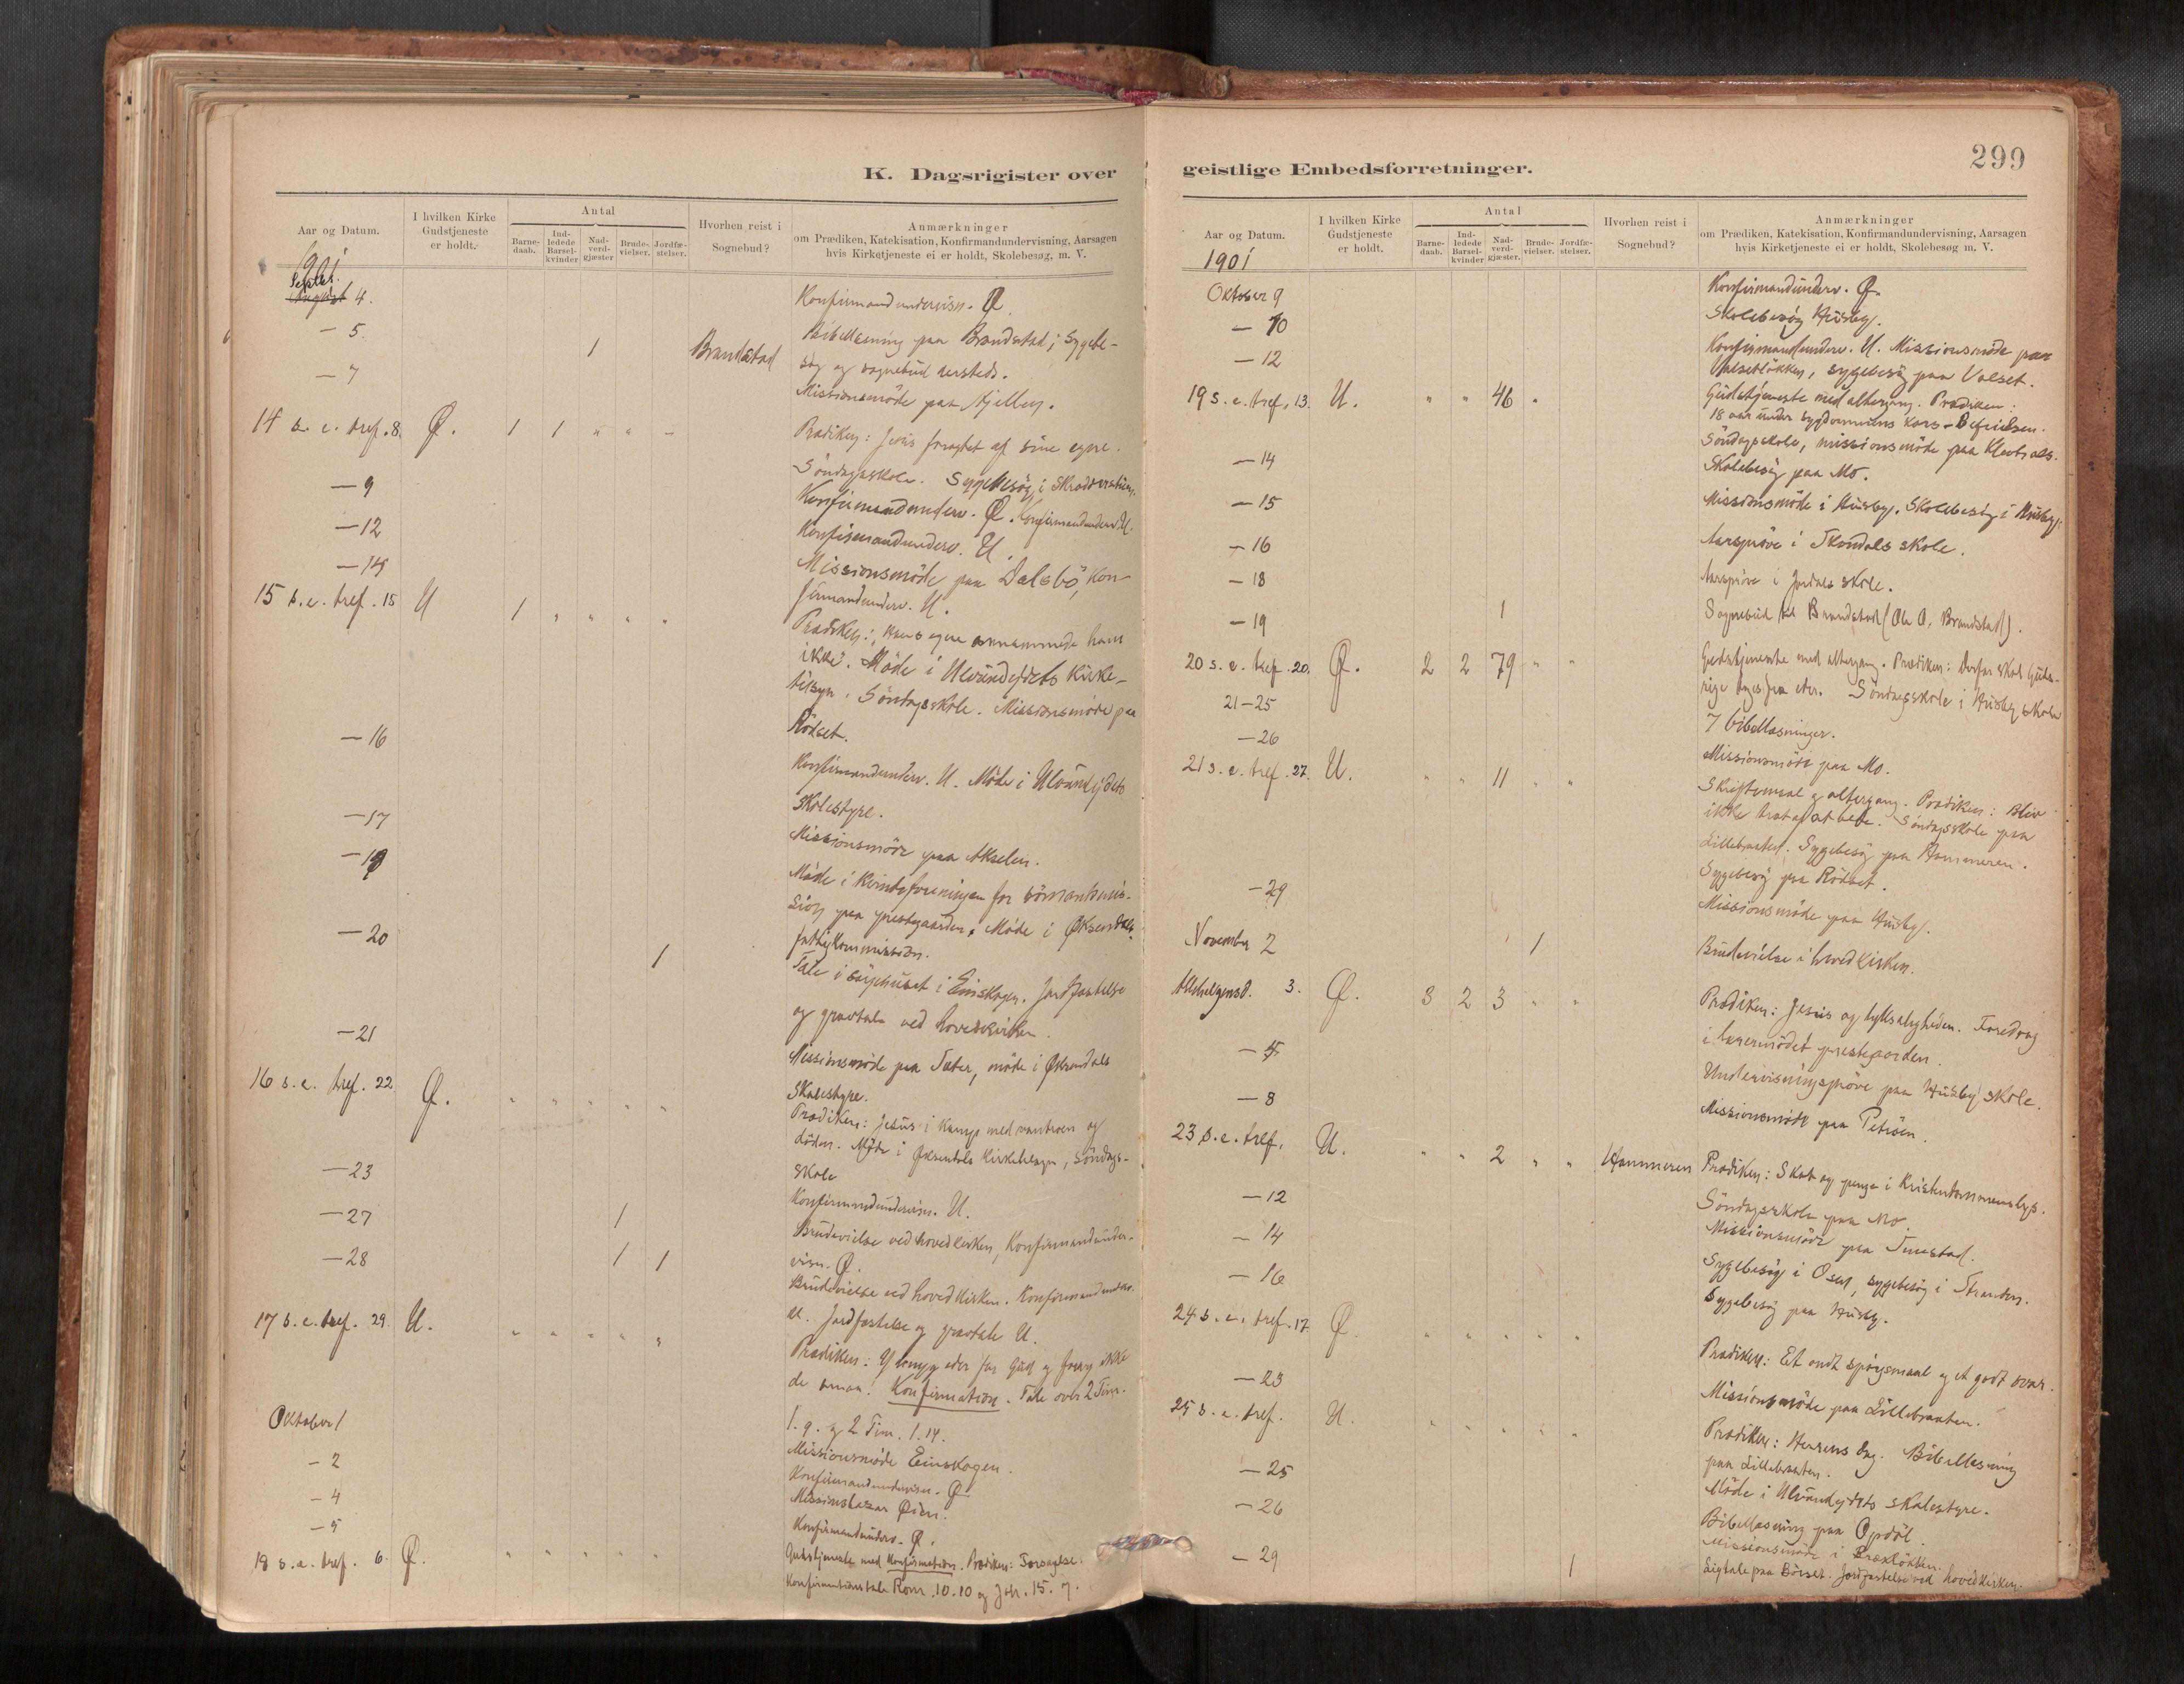 K. Dagsrigister over
Aar og Datum.
I hvilken Kirke
Gudstjeneste
er holdt.
Antal
Barne-
daab.
Ind-
ledede
Barsel-
kvinder
Nad-
verd-
gjæster.
Brude-
vielser.
Jordfæ-
stelser.
Hvorhen reist i
Sognebud?
Anmærkninger
om Prædiken, Katekisation, Konfirmandundervisning, Aarsagen
hvis Kirketjeneste ei er holdt, Skolebesøg, m. V.
1901
Septbr.
August 4. Konfirmandundervisn. Ø.
— 5. 1 Brandstad Bibellæsning paa Brandstad; Sygebe-
søg og sognebud dersteds.
— 7 Missionsmöde paa Hjellen.
14 s. e. tref. 8. Ø. 1 1 " " - Prædiken: Jesus foragtet af sine egne.
Söndagsskole. Sygebesøg i
— 9 Konfirmandunderv. Ø. Konfirmandunderv. U.
— 12 Konfirmandunderv. U.
— 14 Missionsmöde paa Dalsbö, Kon-
firmandunderv. U.
15 s. e. tref. 15 U 1 " " " " Prædiken: Hans egne annammede ham
ikke. Möde i Ulvundeidets Kirke-
tilsyn. Söndagsskole. Missionsmöde paa
Rödset.
— 16 Konfirmandunderv. U. Möde i Ulvundeidets
Skolestyre.
— 17 Missionsmöde paa Akselen.
— 19 Möde i Kvindeforeningen for sömandsmis-
sion paa prestegaarden. Möde i Øksendals
fattigkommission.
— 20 1 Tale i sörgehuset i Einskogen. Jordfæstelse
og gravtale ved hovedkirken.
— 21 Missionsmöde paa Sæter, möde i Øksendals
Skolestyre.
16 s. e. tref. 22 Ø. " " " " " Prædiken: Jesus i Kamp med vantroen og
döden. Möde i Øksendals Kirketilsyn, Söndags-
skole
— 23 Konfirmandundervisn. U.
— 27 1 Brudevielse ved hovedkirken, Konfirmandunder-
visn. Ø.
— 28 1 1 Brudevielse ved hovedkirken. Konfirmandunderv.
U. Jordfæstelse og gravtale U.
17 s. e. tref. 29. U. " " " " " Prædiken: Ydmyg eder for Gud og foragt ikke
de smaa! Konfirmation. Tale over 2 Tim.
1. 9. og 2 Tim. 1. 14.
Oktober 1 Missionsmöde Einskogen.
— 2 Konfirmandundervisn. Ø
— 4 Missionsbasar Øien.
— 5 Konfirmandunderv. Ø.
18 s. e. tref. 6. Ø. " " " " " Gudstjeneste med Konfirmation. Prædiken: Forsagelse.
Konfirmationstale Rom. 10.10 og Joh. 15. 7.
geistlige Embedsforretninger.
299
Aar og Datum.
I hvilken Kirke
Gudstjeneste
er holdt.
Antal
Barne-
daab.
Ind-
ledede
Barsel-
kvinder
Nad-
verd-
gjæster.
Brude-
vielser.
Jordfæ-
stelser.
Hvorhen reist i
Sognebud?
Anmærkninger
om Prædiken, Katekisation, Konfirmandundervisning, Aarsagen
hvis Kirketjeneste ei er holdt, Skolebesøg m. V.
1901
Oktober 9 Konfirmandunderv. Ø.
— 10 Skolebesög Husby.
— 12 Konfirmandunderv. U. Missionsmöde paa
Valsetlökken, sygebesög paa Valset.
19 s. e. tref. 13. U. " " 46 " Gudstjeneste med altergang. Prædiken:
18 aar under sygdommens Kors - Befrielsen.
Söndagsskole, missionsmöde paa
— 14 Skolebesög paa Mo.
— 15 Missionsmöde i Husby. Skolebesög i Husby.
— 16 Aarspröve i skole.
— 18 Aarspröve i Jordals skole.
— 19 1 Sognebud til Brandstad (Ole O. Brandstad).
20 s. e. tref. 20. Ø. 2 2 79 " " Gudstjeneste med altergang. Prædiken: Derfor skal Guds-
rige tages fra eder. Söndagsskole i Husby skole
21-25 7 bibellæsninger.
— 26 Missionsmöde paa Mo.
21 s. e. tref. 27. U. " " 11 " " Skriftemaal og altergang. Prædiken: Bliv
ikke træt af at bede. Söndagsskole paa
Lillebraaten. Sygebesög paa Hammeren.
Sygebesög paa Rödset.
— 29 Missionsmöde paa Husby.
November 2 1 Brudevielse i hovedkirken.
Allehelgensd. 3. Ø. 3 2 3 " " Prædiken: Jesus og lyksaligheden. Foredrag
i lærermödet prestegaarden.
— 5 Undervisningspröve paa Husby skole.
— 8 Missionsmöde paa Petröen.
23 s. e. tref. U. " " 2 " " Hammeren Prædiken: Skat og penge i Kristendommens lys.
Söndagsskole paa Mo.
— 12 Missionsmöde paa
— 14 Sygebesög i Osen, sygebesög i Stranden.
— 16 Sygebesög paa Husby.
24 s. e. tref. 17. Ø. " " " " " Prædiken: Et ondt spörgsmaal og et godt svar.
— 23 Missionsmöde paa Lillebraaten.
25 s. e. tref. U. " " " " " Prædiken: Herrens dag. Bibellæsning
paa Lillebraaten.
— 25 Möde i Ulvundeidets skolestyre.
— 26 Bibellæsning paa Opdöl.
Missionsmöde i
— 29 1 Ligtale paa Börset. Jordfæstelse ved hovedkirken.